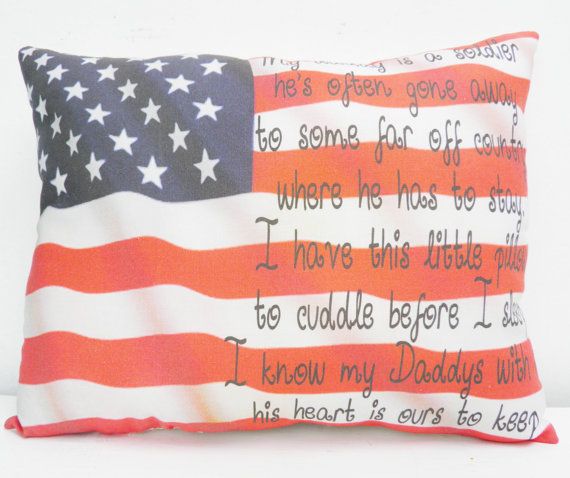 My is a soldier
he's often gone away
to some far off countr
where he has to stay.
I have this little pillow
to cuddle before I sleep
I know my Daddys with
his heart is ours to keep